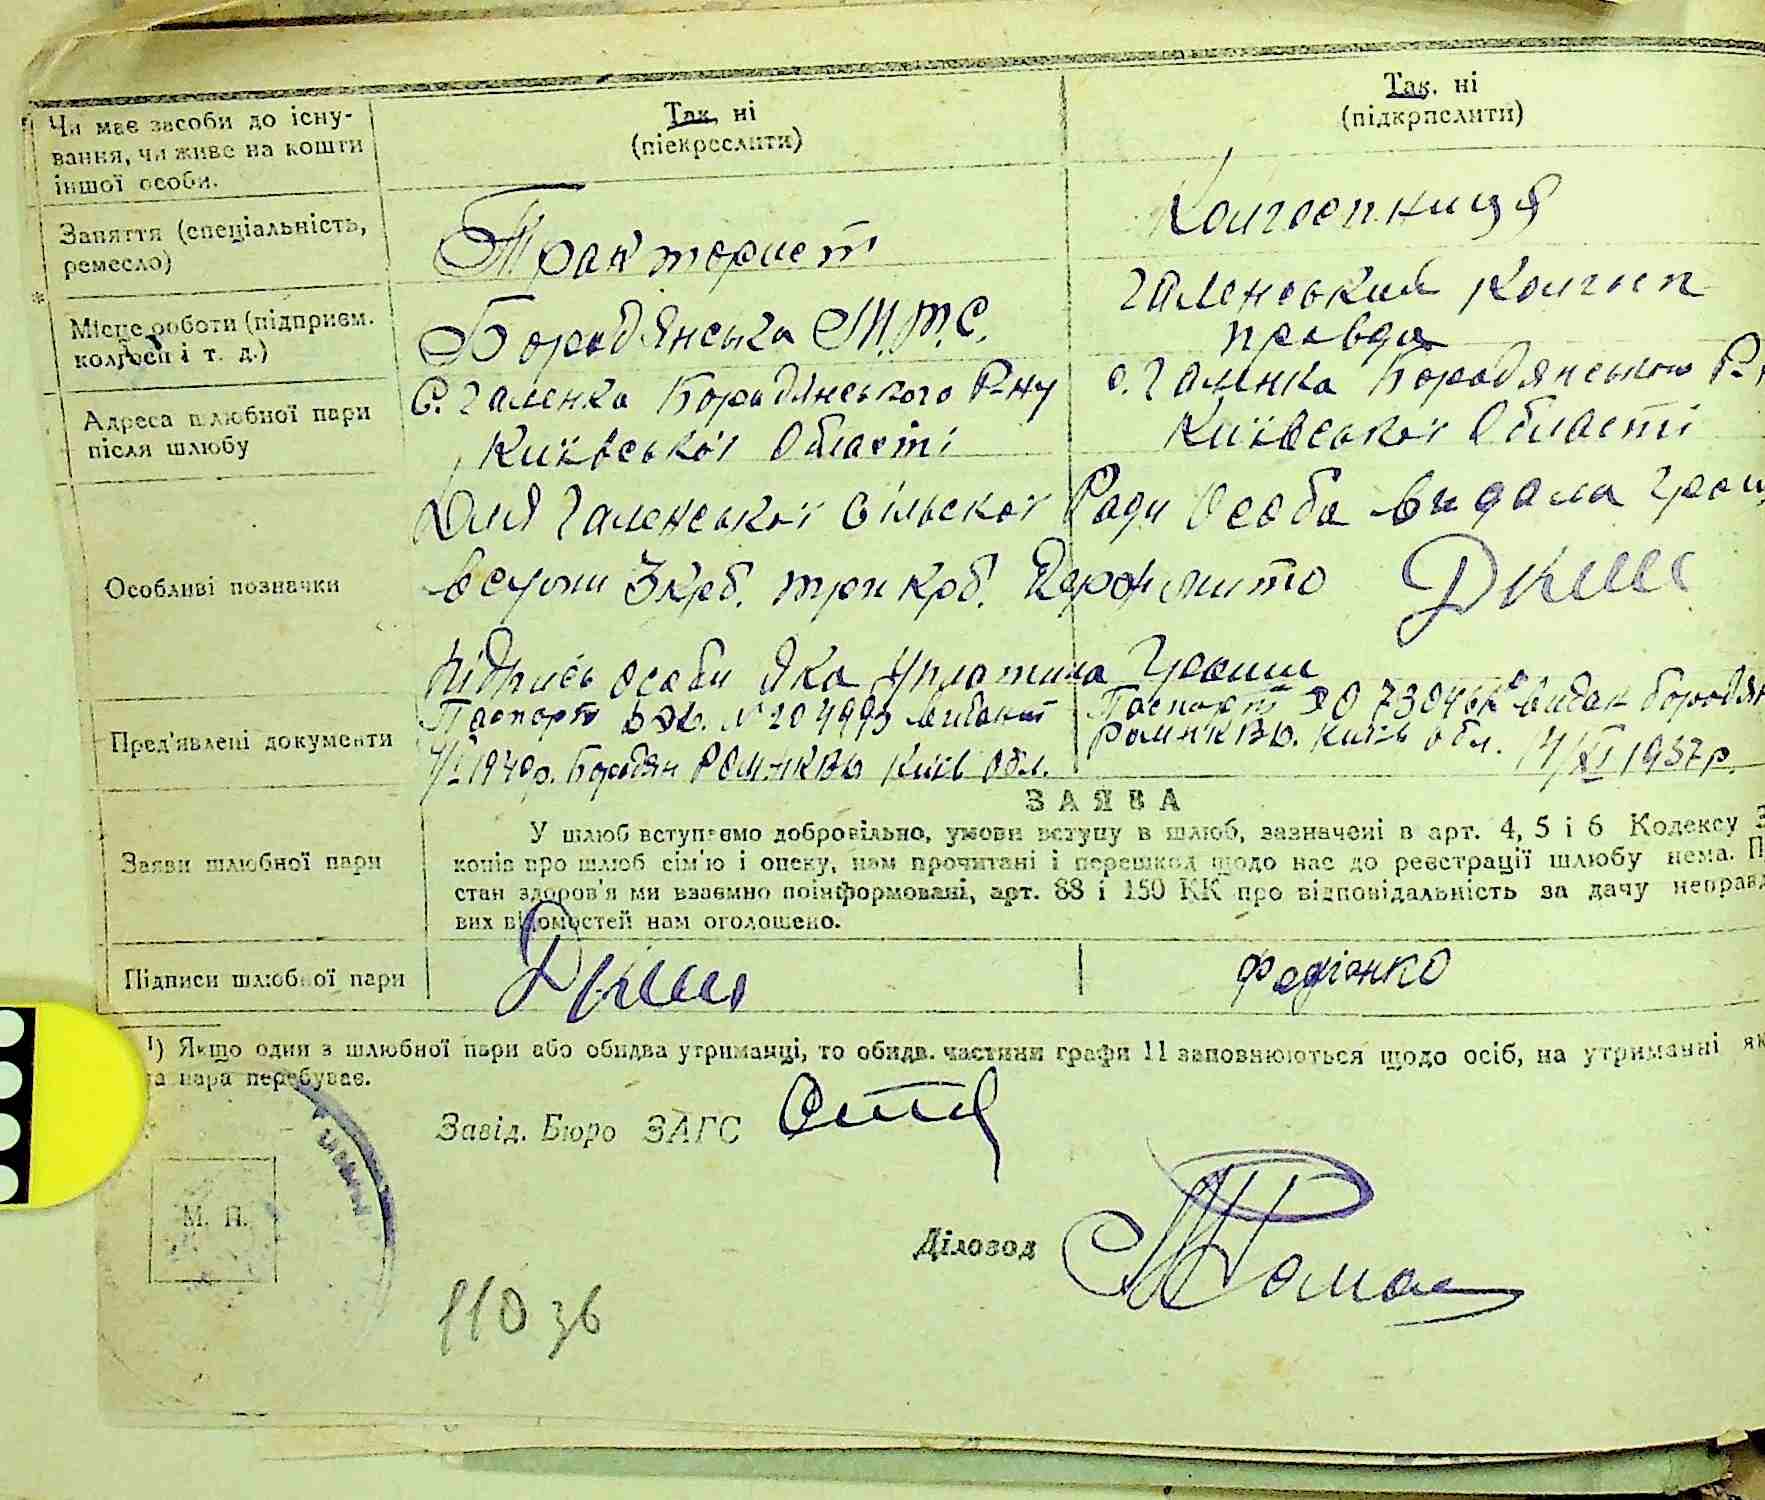 Чи має засоби до існу-
вання, чи живе на кошти
іншої особи.
Так, ні
(піекреслити)
Так. ні
(підкрпслити)
Заняття (спеціальність,
ремесло)
Тракторист
Колгоспниця
Місце роботи (підприєм.
колгосп і т. д.)
Бородянська М.Т.С.
Галенський колгосп
Правда
Адреса шлюбної пари
після шлюбу
С. Галенка Бородянського Р-ну
Київської Області
с. Галенка Бородянського Р-
Київської Області
Особливі позначки
Для Галенської Сільскої Ради Особа видала
3 крб. три крб.
Підпись особи яка уплатила Гроши
Пред'явлені документи
Паспорт № 204993 виданий
1940р. Бородян РОМНКВД Київ Обл.
Паспорт видан Бородян
РОМНКВД. Київ обл. 14/XI 1937р.
Заяви шлюбної пари
ЗАЯВА
У шлюб вступаємо добровільно, умови вступу в шлюб, зазначені в арт. 4, 5 і 6 Кодексу З
конів про шлюб сім'ю і опеку, нам прочитані і перешкод щодо нас до реєстрації шлюбу нема. П
стан здоров'я ми взаємно поінформовані, арт. 88 і 150 КК про відповідальність за дачу неправд
вих відомостей нам оголошено.
Підписи шлюбної пари
Федіонко
¹) Якщо один з шлюбної пари або обидва утриманці, то обидв. частини графи 11 заповнюються щодо осіб, на утриманні як
па пара перебуває.
Завід. Бюро ЗАГС
М. П.
Діловод
110 зв